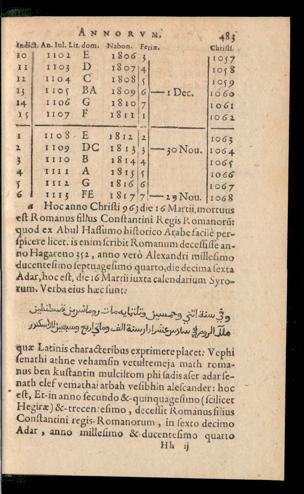 ANNORVM. 483
Indict. An. Iul. Lit. dom. Nabon. Feriæ. Christi.
10 1102 E 1806 3 1057
11 1103 D 1807 4 1058
12 1104 C 1808 5 1059
13 1105 BA 1809 6 — 1 Dec. 1060
14 1106 G 1810 7 1061
15 1107 F 1811 1 1062
1 1108 E 1812 2 1063
2 1109 DC 1813 3 — 30 Nou. 1064
3 1110 B 1814 4 1065
4 1111 A 1815 5 1066
5 1112 G 1816 6 1067
6 1113 FE 1817 7 — 29 Nou. 1068
Hoc anno Christi 963 die 16 Martii, mortuus
est Romanus filius Constantini Regis Romanorũ:
quod ex Abul Hassumo historico Arabe facilè per-
spicere licet. is enim scribit Romanum decessisse an-
no Hagareno 352, anno verò Alexandri millesimo
ducentesimo septuagesimo quarto, die decima sexta
Adar, hoc est, die 16 Martii iuxta calendarium Syro-
rum. Verba eius hæc sunt:
وفي سنة اثني وخمسين وثلثمايه مات رومانس بن قسطنطين
ملك الروم في سادس عشر ادار سنة الف ومايتي اربع وسبعين للاسكندر
quæ Latinis characteribus exprimere placet: Vephi
senathi athne vehamsin vetultemeja math roma-
nus ben kustantin mulcilrom phi sadis aser adar se-
nath elef vemathai arbah vesibhin alescander: hoc
est, Et in anno secundo & quinquagesimo (scilicet
Hegiræ) & trecentesimo, decessit Romanus filius
Constantini regis Romanorum, in sexto decimo
Adar, anno millesimo & ducentesimo quarto
Hh ij